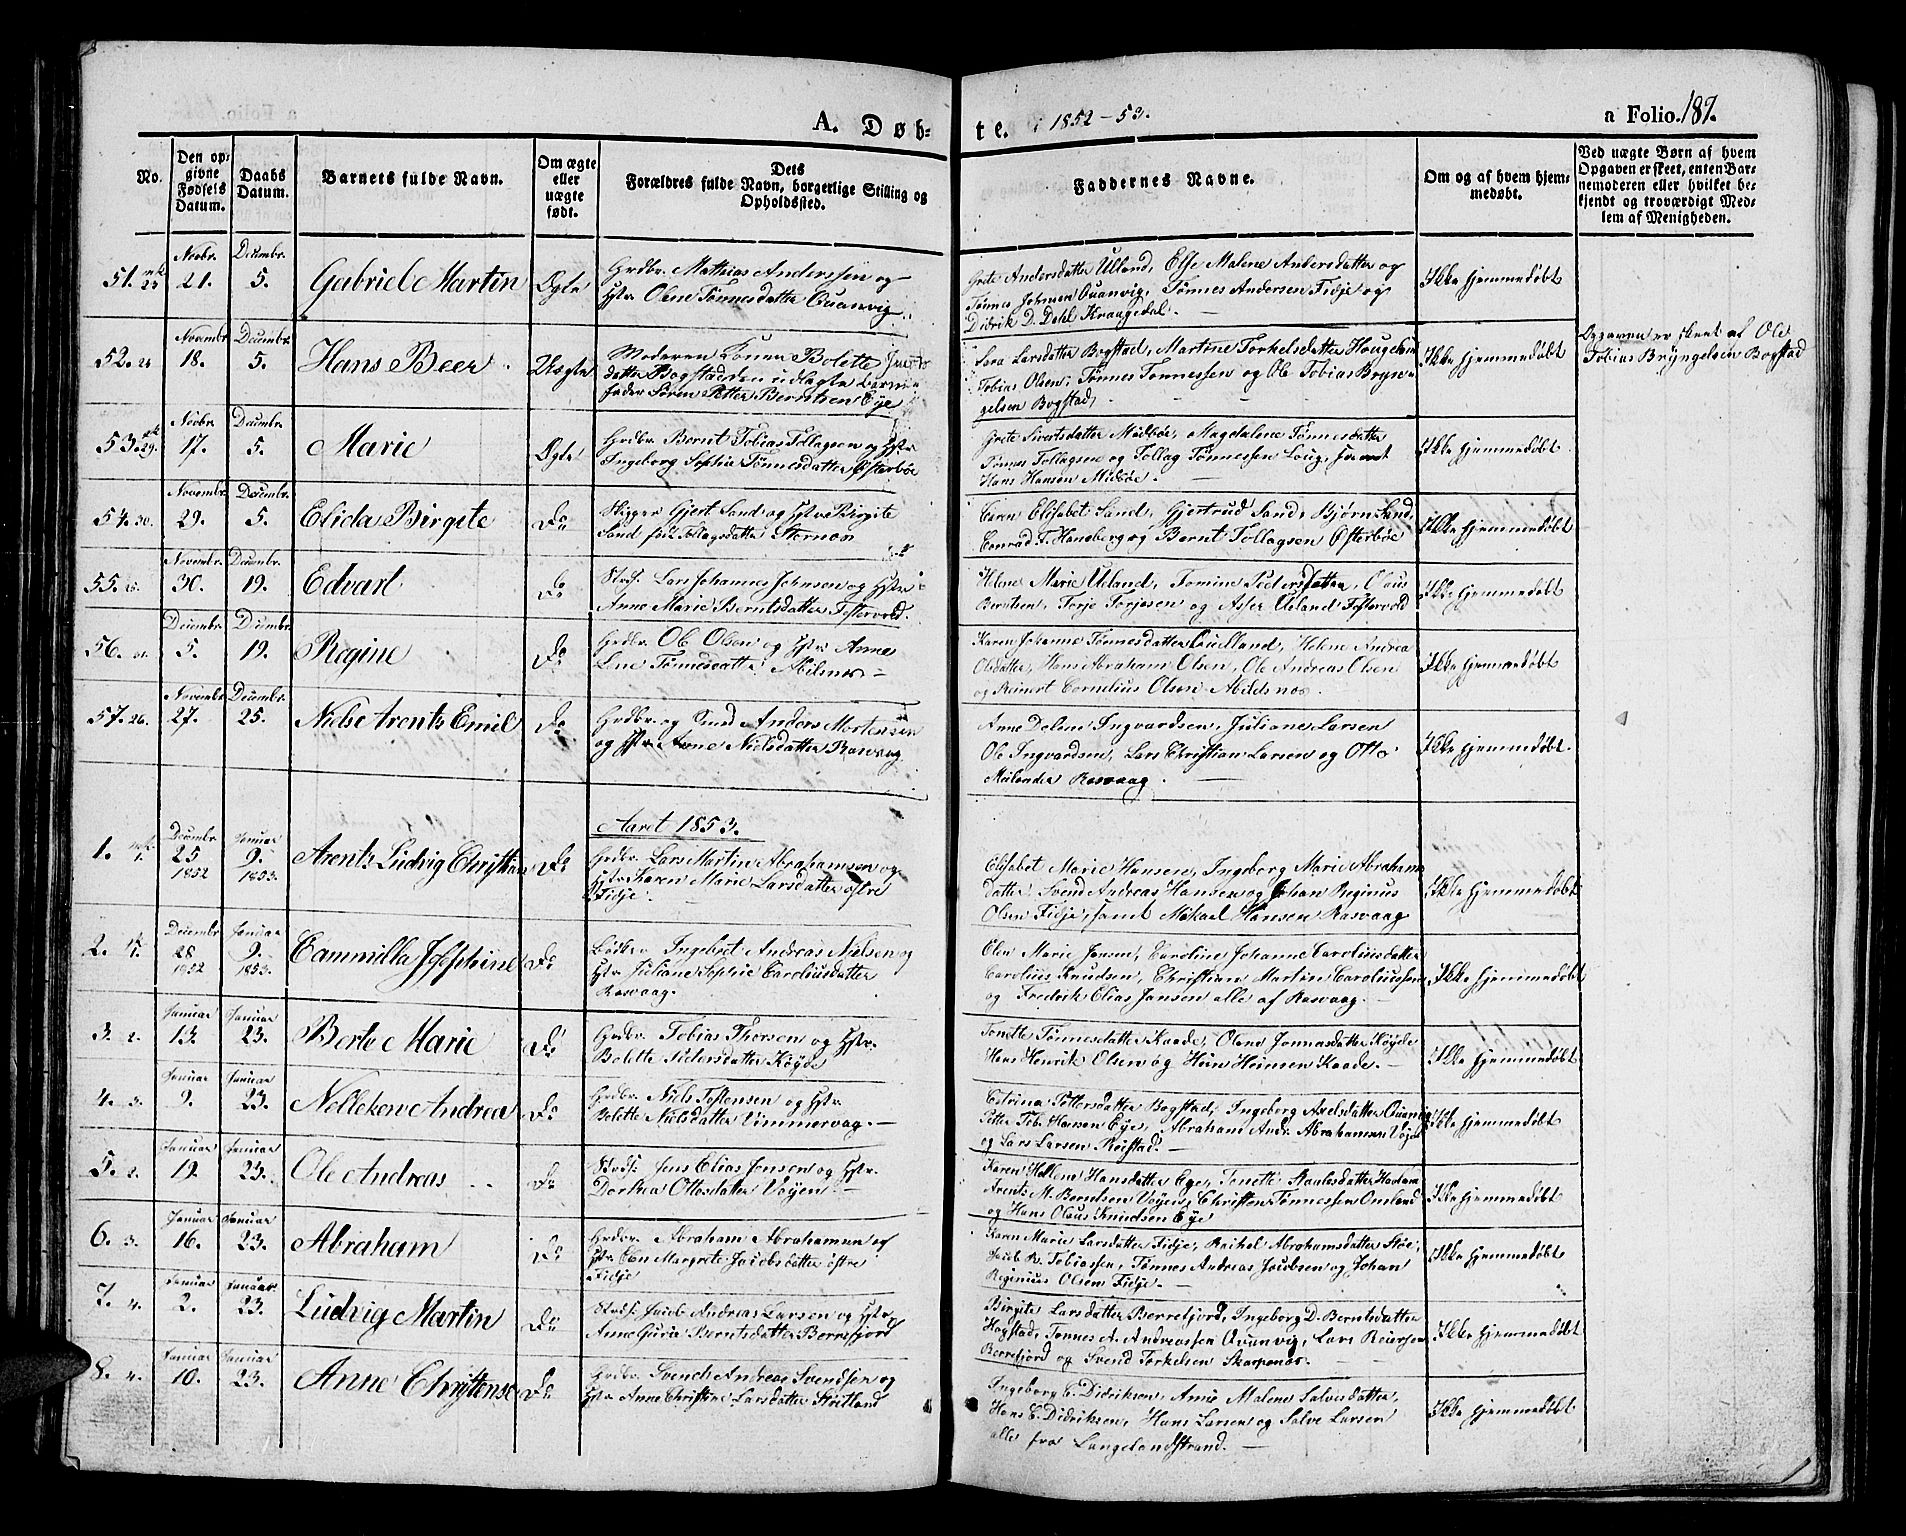 A. Døb-te. i 1852-53.
a Folio. 187.
No.
Den opgivne Fødsels Datum.
Daabs Datum.
Barnets fulde Navn.
Om ægte eller uægte født.
Dets Forældres fulde Navn, borgerlige Stilling og Opholdssted.
Faddernes Navne.
Om og af hvem hjemmedøbt.
Ved uægte Børn af hvem Opgaven er skeet, enten Barnemoderen eller hvilket bekjendt og troværdigt Medlem af Menigheden.
51. Novbr. 21. Decmbr. 5. Gabriel Martin Ægte
Grdbr. Mathias Anderssen og
Hstr. Olene Tønnesdatter Ouanvig
Grete Andersdatter Ulland, Else Malene Andersdatter og
Tønnes Johnsen Ouanvig, Tønnes Andersen Fidje og
Didrik D. Dahl Kraagedal.
Ikke hjemmedøbt
52. Novembr. 18. Decmbr. 5. Hans Beer Uægte
Moderen Konen Bolette
datter Bogstad den udlagte Barne
fader Søren Petter Berntsen Eye
Sara Larsdatter Bogstad, Martine Torkelsdatter
Tobias Olsen, Tønnes Tønnessen og Ole Tobias Bryn-
gelsen Bogstad.
Ikke hjemmedøbt
Opgaven er skeet af Ole
Tobias Bryngelsen Bogstad
53. Novbr. 17. Decmbr. 5. Marie Ægte
Grdbr. Bernt Tobias Tollagsen og Hstr
Ingeborg Sophie Tønnesdatter Østerbøe
Grete Sivertsdatter Midbøe, Magdalene Tønnesdatter
Tønnes Tollagsen og Tollag Tønnessen Loug, samt
Hans Hansen Midbøe.
Ikke hjemmedøbt
54. 30. Novembr. 29. Decmbr. 5. Elida Birgite Do
Skipper Gjert Sand og Hstr Birgite
Sand født Tollagsdatter Stornæs
Caren Elisabet Sand, Gjertrud Sand, Bjørn Sand,
Conrad F. Hansberg og Bernt Tollagsen Østerbøe
Ikke hjemmedøbt
55. Novembr. 30. Decmbr. 19. Edvart Do
Strds. Lars Johannes Johnsen og Hstr
Anne Marie Berntsdatter Festervold.
Helene Marie Uland, Tomine Pedersdatter, Olaus
Berntsen, Torje Torjesen og Asser Uland Festervold
Ikke hjemmedøbt
56. 31. Decmbr. 5. Decmbr. 19. Regine Do
Grdbr. Ole Olsen og Hstr Anne
Lene Tønnesdatter Abilsnes
Karen Johanne Tønnesdatter Quelland, Helene Andrea
Olsdatter, Hans Abraham Olsen, Ole Andreas Olsen
og Reinert Cornelius Olsen Abildsnes.
Ikke hjemmedøbt
57. 26. Novembr. 27. Decmbr. 25. Nielse Arents Emil Do
Grdbr. og Smed Anders Mortensen
og Hstr Anne Nielsdatter Rasvaag
Anne Delene Ingvardsen, Juliane Larsen
Ole Ingvardsen, Lars Christian Larsen og Otto
Meilender Rasvaag.
Ikke hjemmedøbt.
Aaret 1853.
1. Decmbr. 25 1852 Januar 9. 1853. Arents Ludvig Christian Do
Grdbr. Lars Martin Abrahamsen og
Hstr Karen Marie Larsdatter østre
Fidje.
Elisabet Marie Hansen, Ingeborg Marie Abraham
datter, Svend Andreas Hansen og Johan Reginus
Olsen Fidje, samt Mikael Hansen Rasvaag
Ikke hjemmedøbt
2. Decmbr 28 1852 Januar 9. 1853. Cammilla Josephine Do
Bødker Ingebret Andreas Nielsen og
Hstr Juliane Sophie Caroliusdatter
Rasvaag.
Olen Marie Jensen, Caroline Johanne Caroliusdatter
Carolius Knudsen, Christian Martin Caroliussen
og Fredrik Elias Jansen alle af Rasvaag.
Ikke hjemmedøbt
3. 2. Januar 13. Januar 23. Berte Marie Do
Grdbr. Tobias Thorsen og Hstr.
Bolette Pedersdatter Køyde
Tonette Tønnesdatter Kaade, Olene Jonnasdatter Køyde
Hans Henrik Olsen og Hein Heinsen Kaade.
Ikke hjemmedøbt
4. 3. Januar 9. Januar 23. Nellekove Andrea Do
Grdbr. Niels Testensen og Hstr.
Belette Nielsdatter Vimmervag.
Cetrine Pettersdatter Bogstad, Ingeborg Axelsdatter Ouanvig
Petter Tob. Hansen Eye, Abraham Andr. Abrahamsen Vøjen
og Lars Larsen Røistad.
Ikke hjemmedøbt
5. 2. Januar 19. Januar 23. Ole Andreas Do
Strds. Jens Elias Jensen og Hstr.
Dorthea Ottosdatter Vøyen
Karen Hellene Hansdatter Eye, Tonette
Arents M. Berntsen Vøyen, Christen Tønnessen Omland
og Hans Olaus Knudsen Eye
Ikke hjemmedøbt
6. 3. Januar 16. Januar 23. Abraham Do
Grdbr. Abraham Abrahamsen og
Hstr Elen Margrete Jacobsdatter østre
Fidje
Karen Marie Larsdatter Fidje, Rachel Abrahamsdatter Støe,
Jacob R. Tobiassen, Tønnes Andreas Jacobsen og Johan
Reginius Olsen Fidje.
Ikke hjemmedøbt
7. 4. Januar 2. Januar 23. Ludvig Martin Do
Strds. Jacob Andreas Larsen og Hstr.
Anne Guria Berntsdatter Berrefjord
Birgite Larsdatter Berrefjord, Ingeborg D. Berntsdatter
Hogstad, Tønnes A. Andreassen Ouanvig, Lars Reiersen
Berrefjord og Svend Torkelsen Skarpenes.
Ikke hjemmedøbt
8. 4. Januar 10. Januar 23. Anne Christense Do
Grdbr. Svend Andreas Svendsen og
Hstr Anne Christine Larsdatter Støitland
Ingeborg E. Didriksen, Anne Malene Salvesdatter,
Hans E. Didriksen, Hans Larsen og Salve Larsen
alle fra Langelandstrand.
Ikke hjemmedøbt